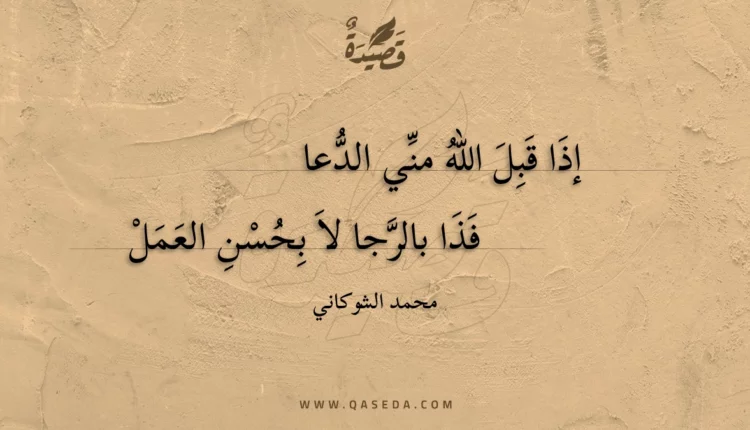 قَصِيْدَةٌ
إذَا قَبِلَ اللهُ منِّي الدُّعا
فَذَا بالرَّجا لاَ بِحُسْنِ العَمَلْ
محمد الشوكاني
WWW.QASEDA.COM